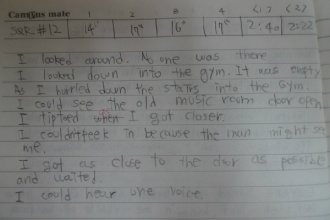 Campus mate 1 2 3 4 (1) (2)
SQR #12 14" 17" 16" 17" 2:40 2:22
I looked around. No one was there
I looked down into the gym. It was empty
As I hurried down the stairs into the gym.
I could see the old music room door open
I tiptoed when I got closer.
I couldn't peek in because the man might see
me.
I got as close to the door as possible
and waited
I could hear one voice